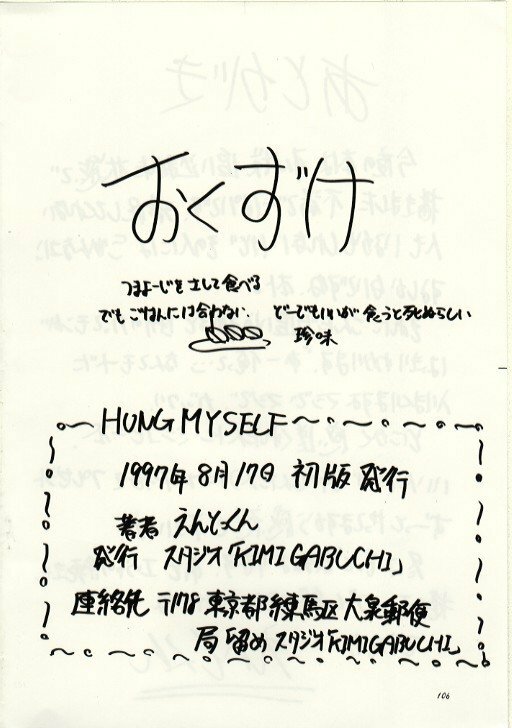 おくずけ
つまよーじをさして食べる
でもごはんには合わない。 どーでもいいが 食うと死ぬらしい
珍味
HUNG MYSELF
1997年8月17日 初版発行
著者 えんとっくん
発行 スタジオ「KIMIGABUCHI」
連絡先 〒178 東京都練馬区大泉郵便
局留め スタジオ「KIMIGABUCHI」
106